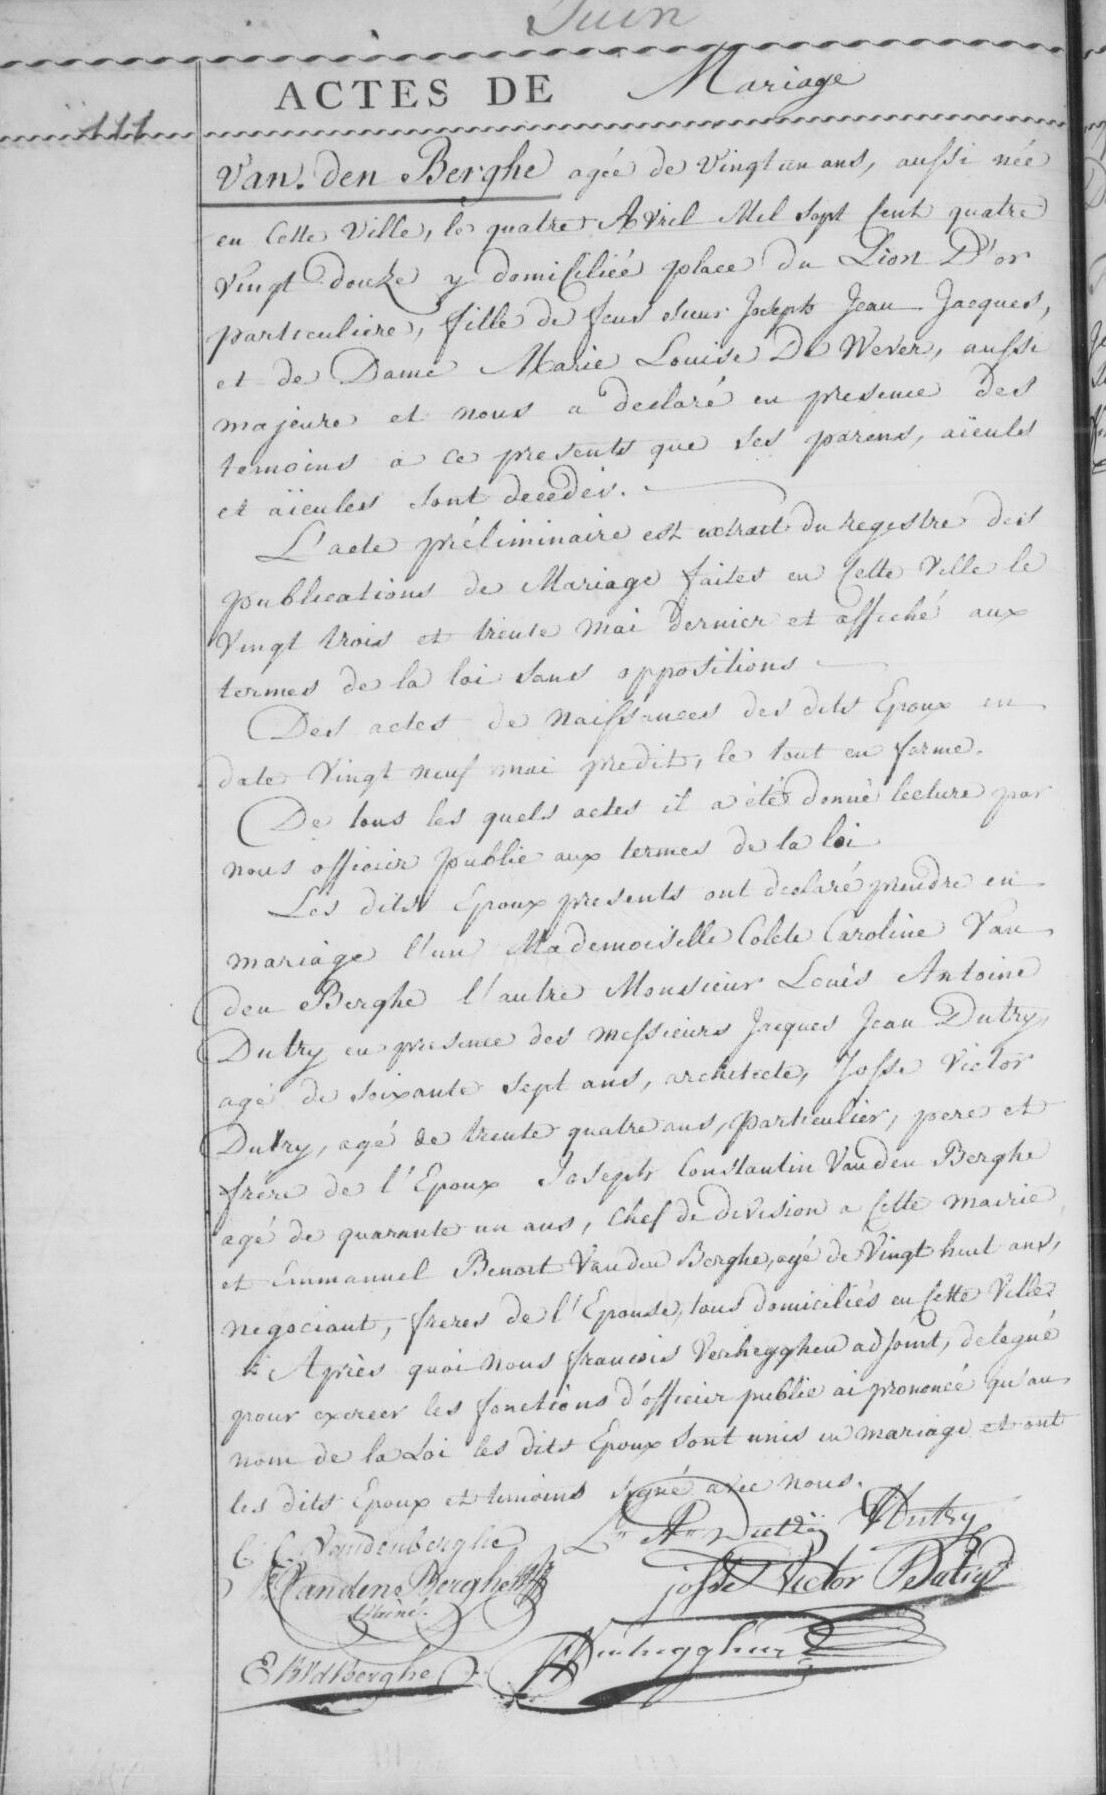 Juin
ACTES DE Mariage
111
Van den Berghe agée de vingt un ans, aussi née
en cette Ville, le quatre Avril Mil sept Cent quatre
Vingt douze y domiciliée place du Lion D'or
particuliere, fille de feus sieur Joseph Jean Jacques,
et de Dame Marie Louise De Wever, aussi
majeure et nous a declaré en presence des
temoins a ce presents que ses parens, aïeuls
et aïeules sont decedés.
L'acte préliminaire est extrait du registre des
publications de Mariage faites en Cette Ville le
Vingt trois et trente mai dernier et affiché aux
termes de la loi sans oppositions
Des actes de Naissances des dits Epoux en
date Vingt neuf mai predit, le tout en forme.
De tous les quels actes il a été donné lecture par
nous officier public aux termes de la loi
Les dits Epoux presents ont declaré prendre en
mariage l'un Mademoiselle Colete Caroline Van
den Berghe l'autre Monsieur Louis Antoine
Dutry en presence des Messieurs Jacques Jean Dutry,
agé de soixante sept ans, architecte, Josse Victor
Dutry, agé de trente quatre ans, particulier, pere et
frere de l'Epoux Joseph Constantin Vanden Berghe
agé de quarante un ans, Chef de division a Cette mairie
et Emmanuel Benoit Vanden Berghe, agé de Vingt huit ans,
negociant, freres de l'Epouse, tous domiciliés en Cette Ville
Après quoi nous francois Verhegghen adjoint, delegué
pour exercer les fonctions d'officier public ai prononcé qu'au
nom de la Loi les dits Epoux sont unis en mariage et ont
les dits Epoux et temoins signé avec nous.
C. C. Vandenberghe Ls An Dutry JJDutry
Vanden Berghe josse Victor Dutry
L'ainé.
E B Vdberghe Verhegghen